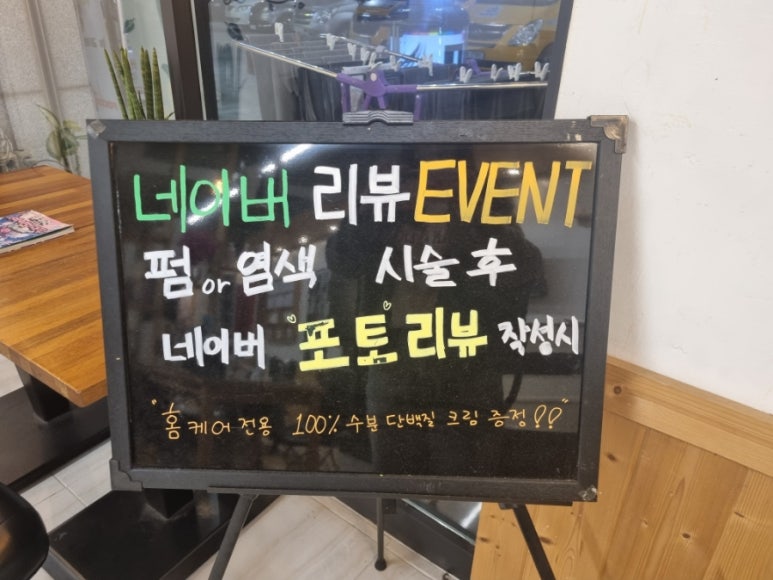 네이버 리뷰 EVENT
펌 or 염색 시술 후
네이버 "포토" 리뷰 작성시
"홈케어 전용 100% 수분 단백질 크림 증정!!"